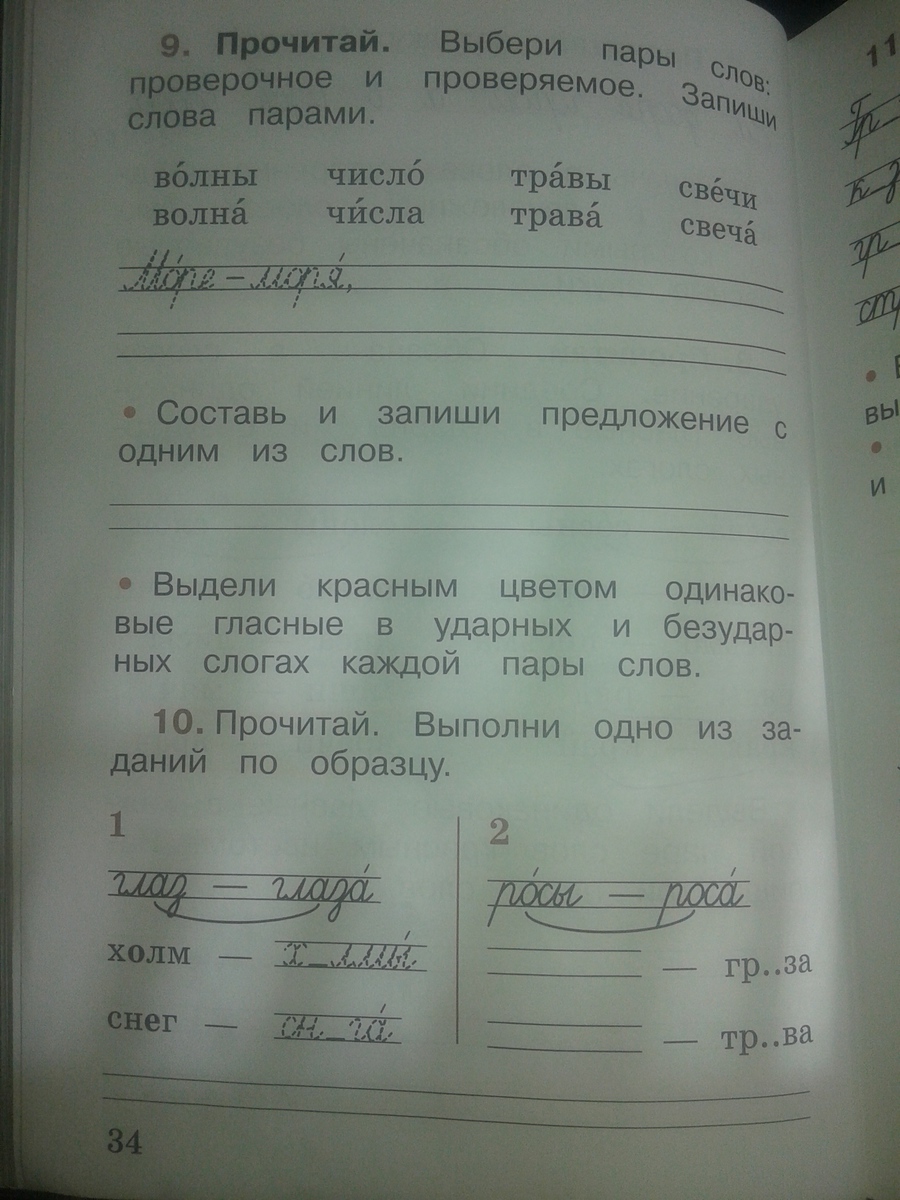 9. Прочитай. Выбери пары слов:
проверочное и проверяемое. Запиши
слова парами.
во́лны число́ тра́вы све́чи
волна́ чи́сла трава́ свеча́
Мо́ре – моря́,
• Составь и запиши предложение с
одним из слов.
• Выдели красным цветом одинако-
вые гласные в ударных и безудар-
ных слогах каждой пары слов.
10. Прочитай. Выполни одно из за-
даний по образцу.
1
глаз — глаза́
холм — х_лмы́
снег — сн_га́
2
ро́сы — роса́
— гр..за
— тр..ва
34
11
Гр
к
гр
ст
•
вы
•
и